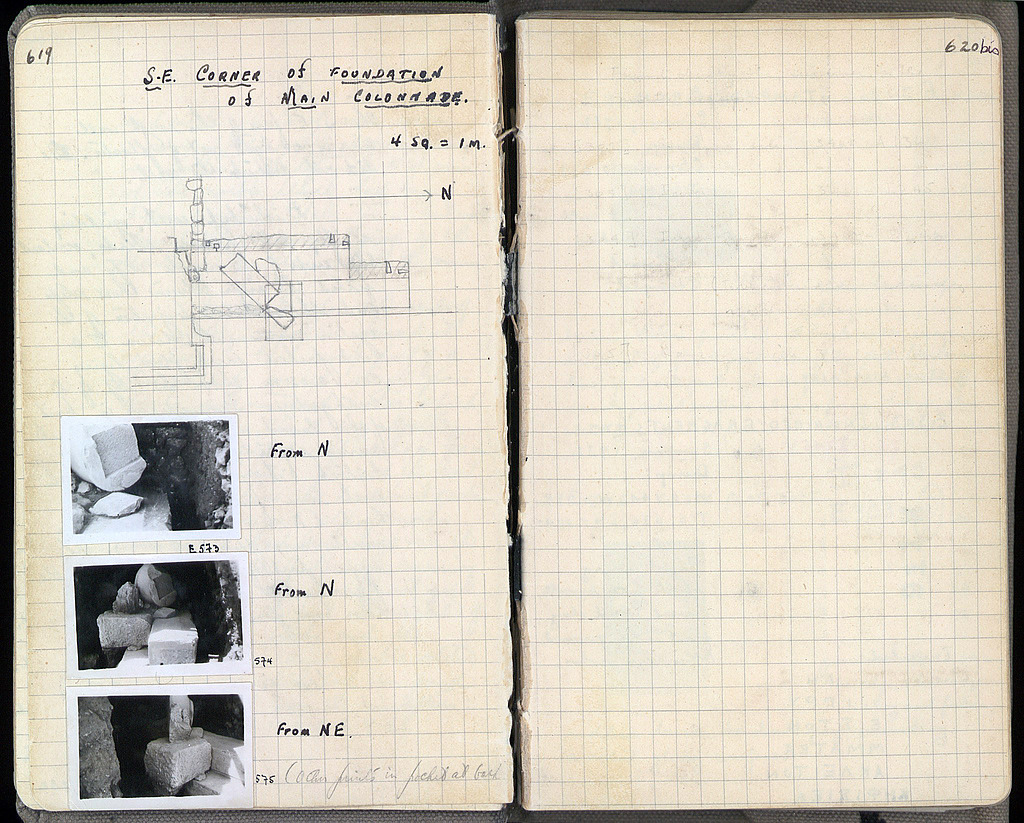 619
S-E. CORNER of FOUNDATION
of MAIN COLONNADE.
4 SQ. = 1 M.
N
From N
E 573
From N
574
From NE.
575 (Other prints in pocket at back
620bis